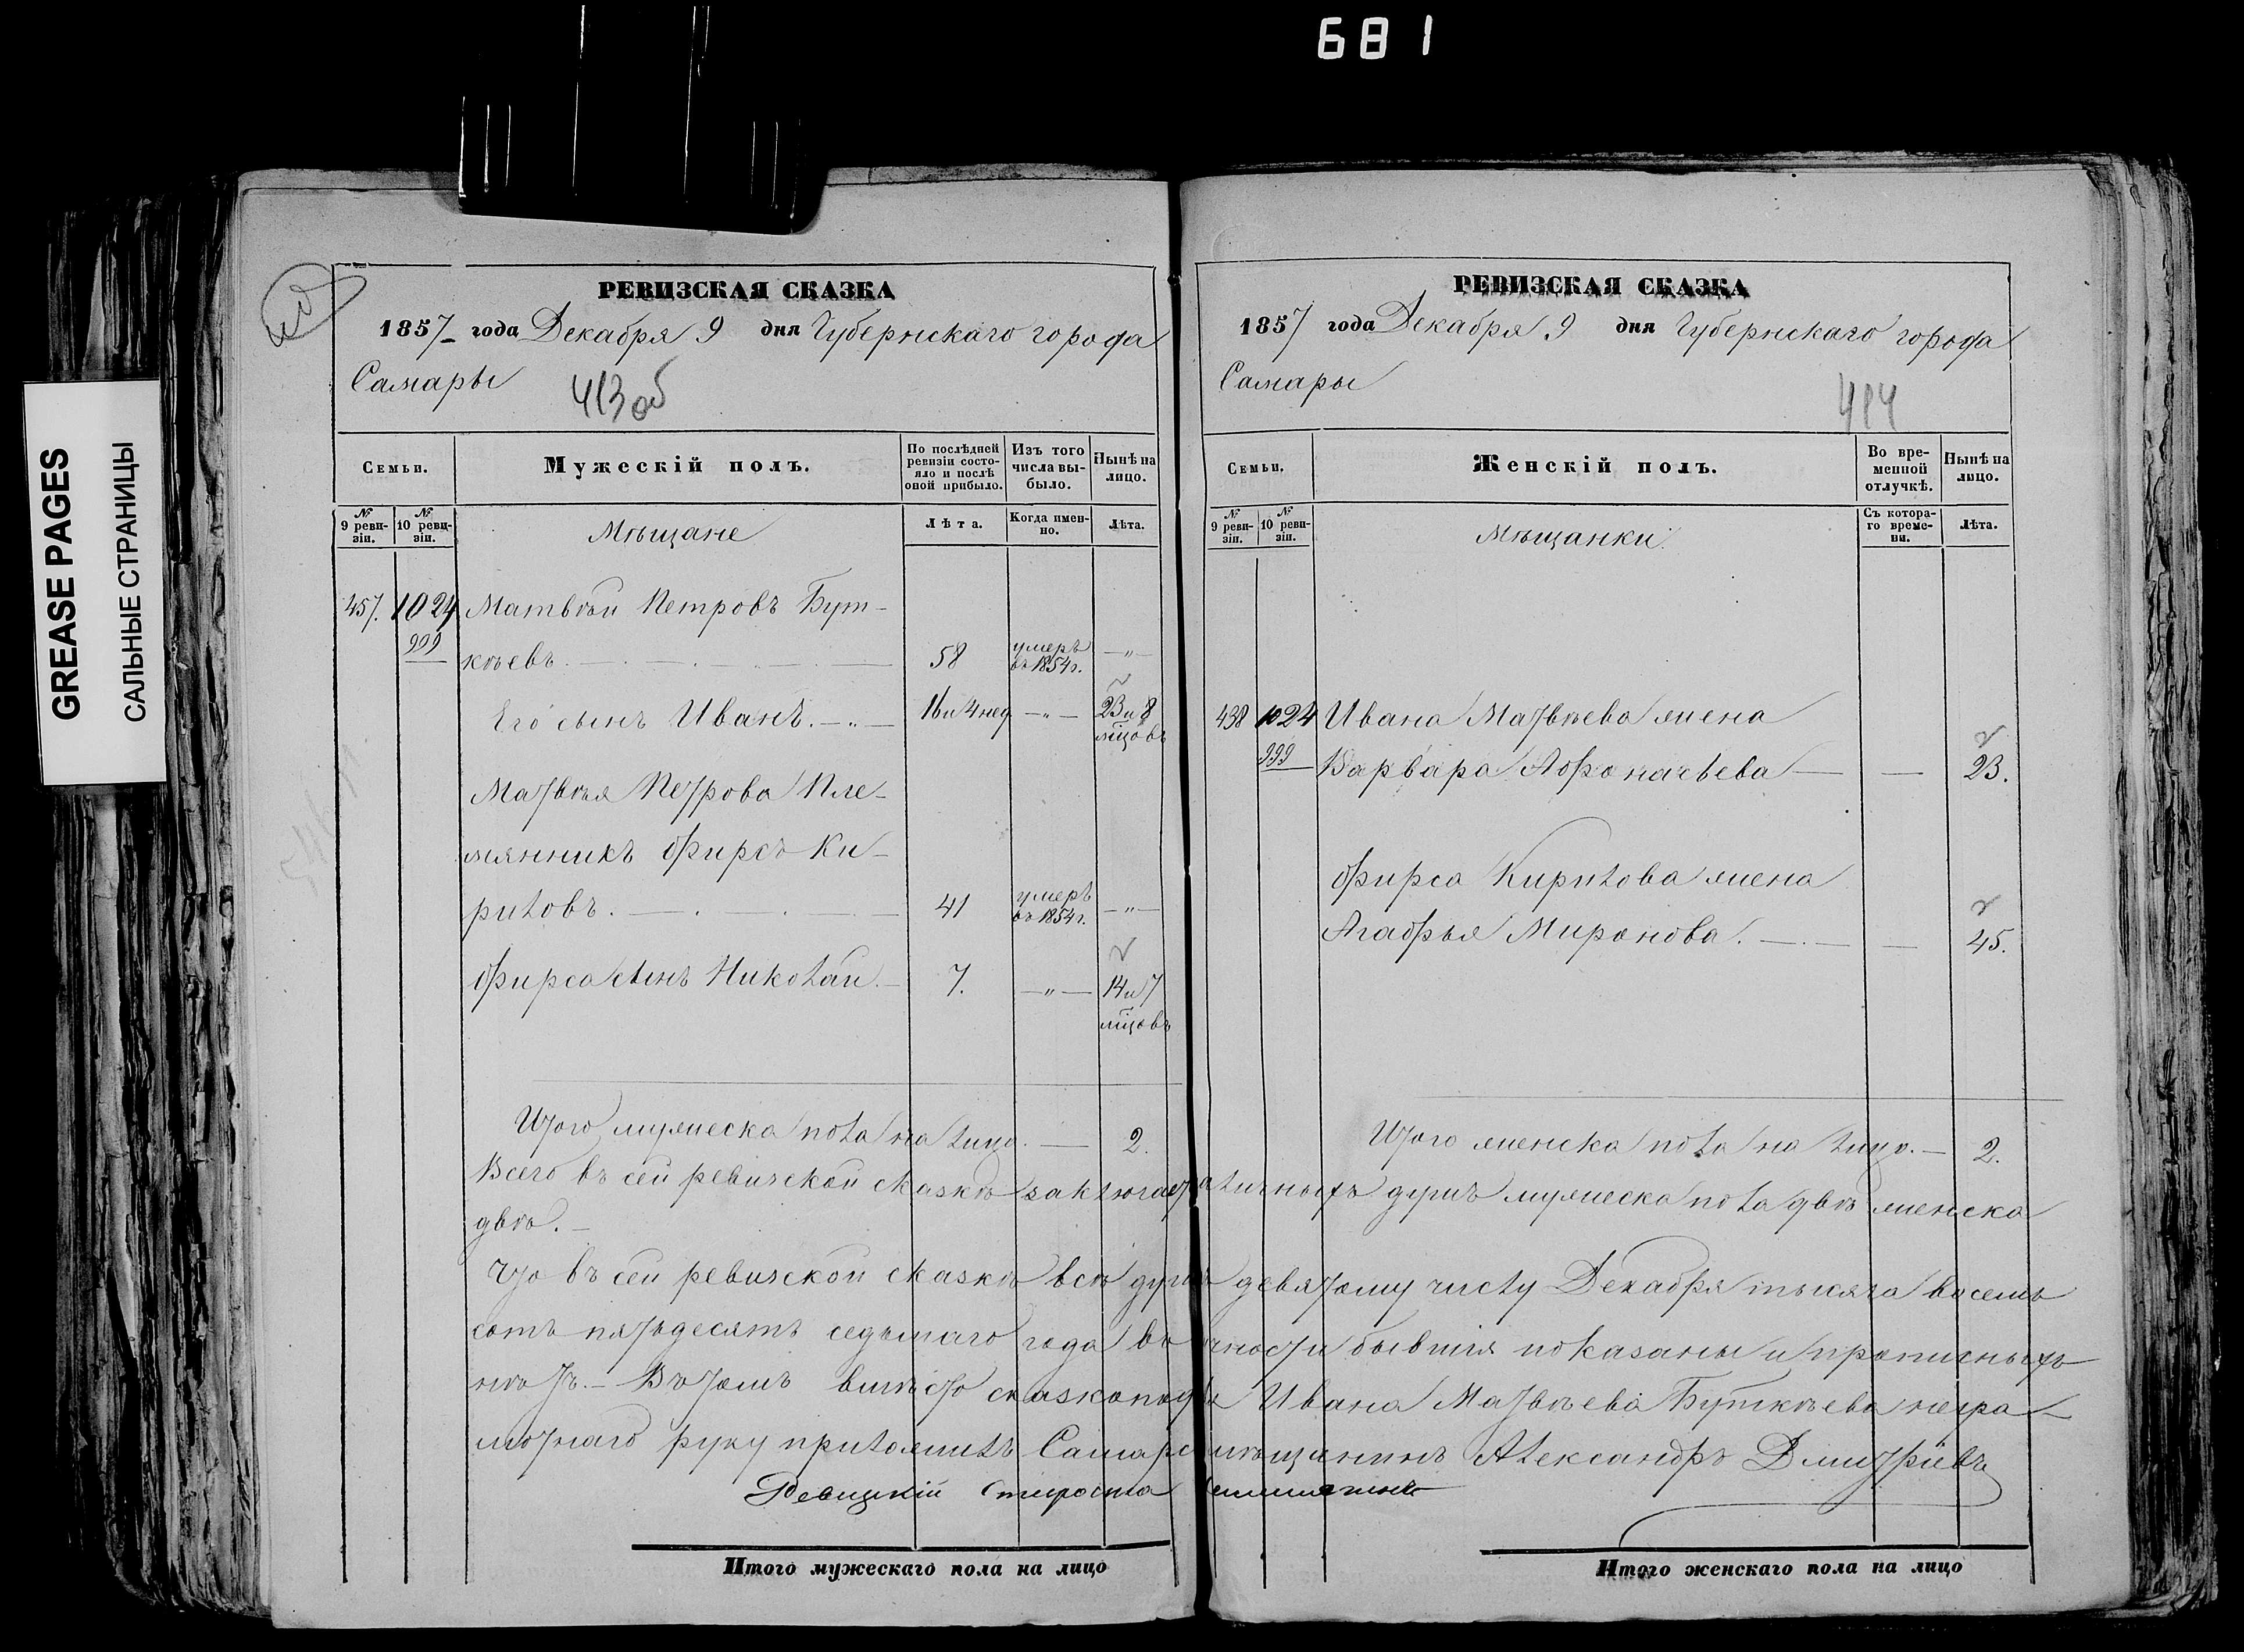 681
GREASE PAGES
САЛЬНЫЕ СТРАНИЦЫ
РЕВИЗСКАЯ СКАЗКА
1857 года Декабря 9 дня Губернскаго города
Самары
413 об
Семьи.
Мужескій полъ.
По послѣдней ревизіи состояло и послѣ оной прибыло.
Изъ того числа выбыло.
Нынѣ на лицо.
№ 9 ревизіи.
№ 10 ревизіи.
Мѣщане
Лѣта.
Когда именно.
Лѣта.
457. 1024 Матвѣй Петровъ Бут-
999 кѣевъ. 58 умеръ въ 1854 г. — „ —
Его сынъ Иванъ. — „ — 16 и 4 нед — „ — 23 и 8 мѣцовъ
Матвѣя Петрова Пле-
мянникъ Фирсъ Ки-
риловъ. 41 умеръ въ 1854 г. — „ —
Фирса сынъ Николай. 7. — „ — 14 и 7
мѣцовъ
Итого мужеска пола на лицо. — 2.
РЕВИЗСКАЯ СКАЗКА
1857 года Декабря 9 дня Губернскаго города
Самары
414
Семьи.
Женскій полъ.
Во временной отлучкѣ.
Нынѣ на лицо.
№ 9 ревизіи.
№ 10 ревизіи.
Мѣщанки.
Съ котораго времени.
Лѣта.
438 1024 Ивана Матвѣева жена
999 Варвара Афонасьева — — 23.
Фирса Кирилова жена
Агафья Миронова. — — 45.
Итого женска пола на лицо. — 2.
Всего въ сей ревизской сказкѣ заключает наличныхъ душъ мужеска пола двѣ женска
двѣ. —
Что въ сей ревизской сказкѣ всѣ душъ девятому числу Декабря тысяча восемь
сотъ пятьдесятъ седьмаго года въ чности бывшія показаны и прописныхъ
нѣтъ. — Въ томъ вмѣсто сказкопода Ивана Матвѣева Буткѣева негра-
мотнаго руку приложилъ Самарс мѣщанинъ Александръ Дмитріевъ
Ревизскій Староста
Итого мужескаго пола на лицо
Итого женскаго пола на лицо